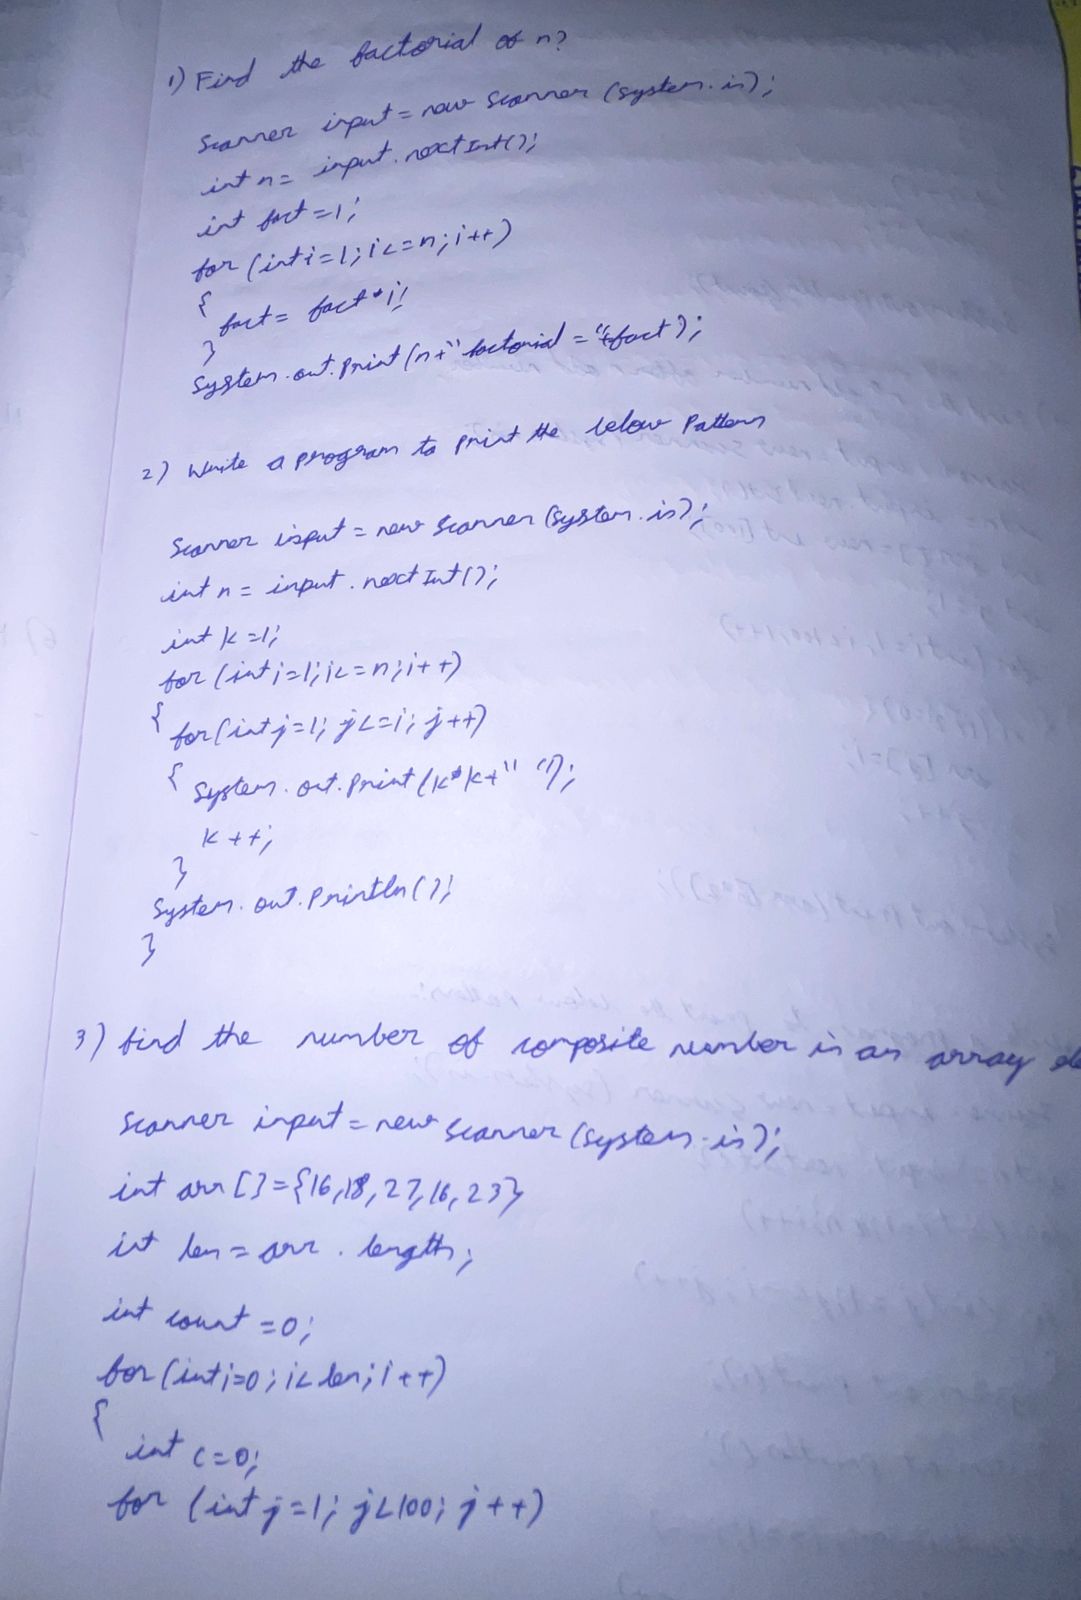 1) Find the factorial of n?
Scanner input = new Scanner (System.in);
int n = input.nextInt();
int fact = 1;
for (int i = 1; i <= n; i++)
{
fact = fact * i;
}
System.out.Print (n+" factorial = "+fact);
2) Write a program to print the below Pattern
Scanner input = new Scanner (System.in);
int n = input.nextInt();
int k = 1;
for (int i = 1; i <= n; i++)
{
for (int j = 1; j <= i; j++)
{
System.out.Print (k*k+" ");
k++;
}
System.out.Println();
}
3) find the number of composite number in an array
Scanner input = new Scanner (System.in);
int arr [] = {16,18,27,16,23}
int len = arr.length;
int count = 0;
for (int i=0; i< len; i++)
{
int c=0;
for (int j=1; j<100; j++)